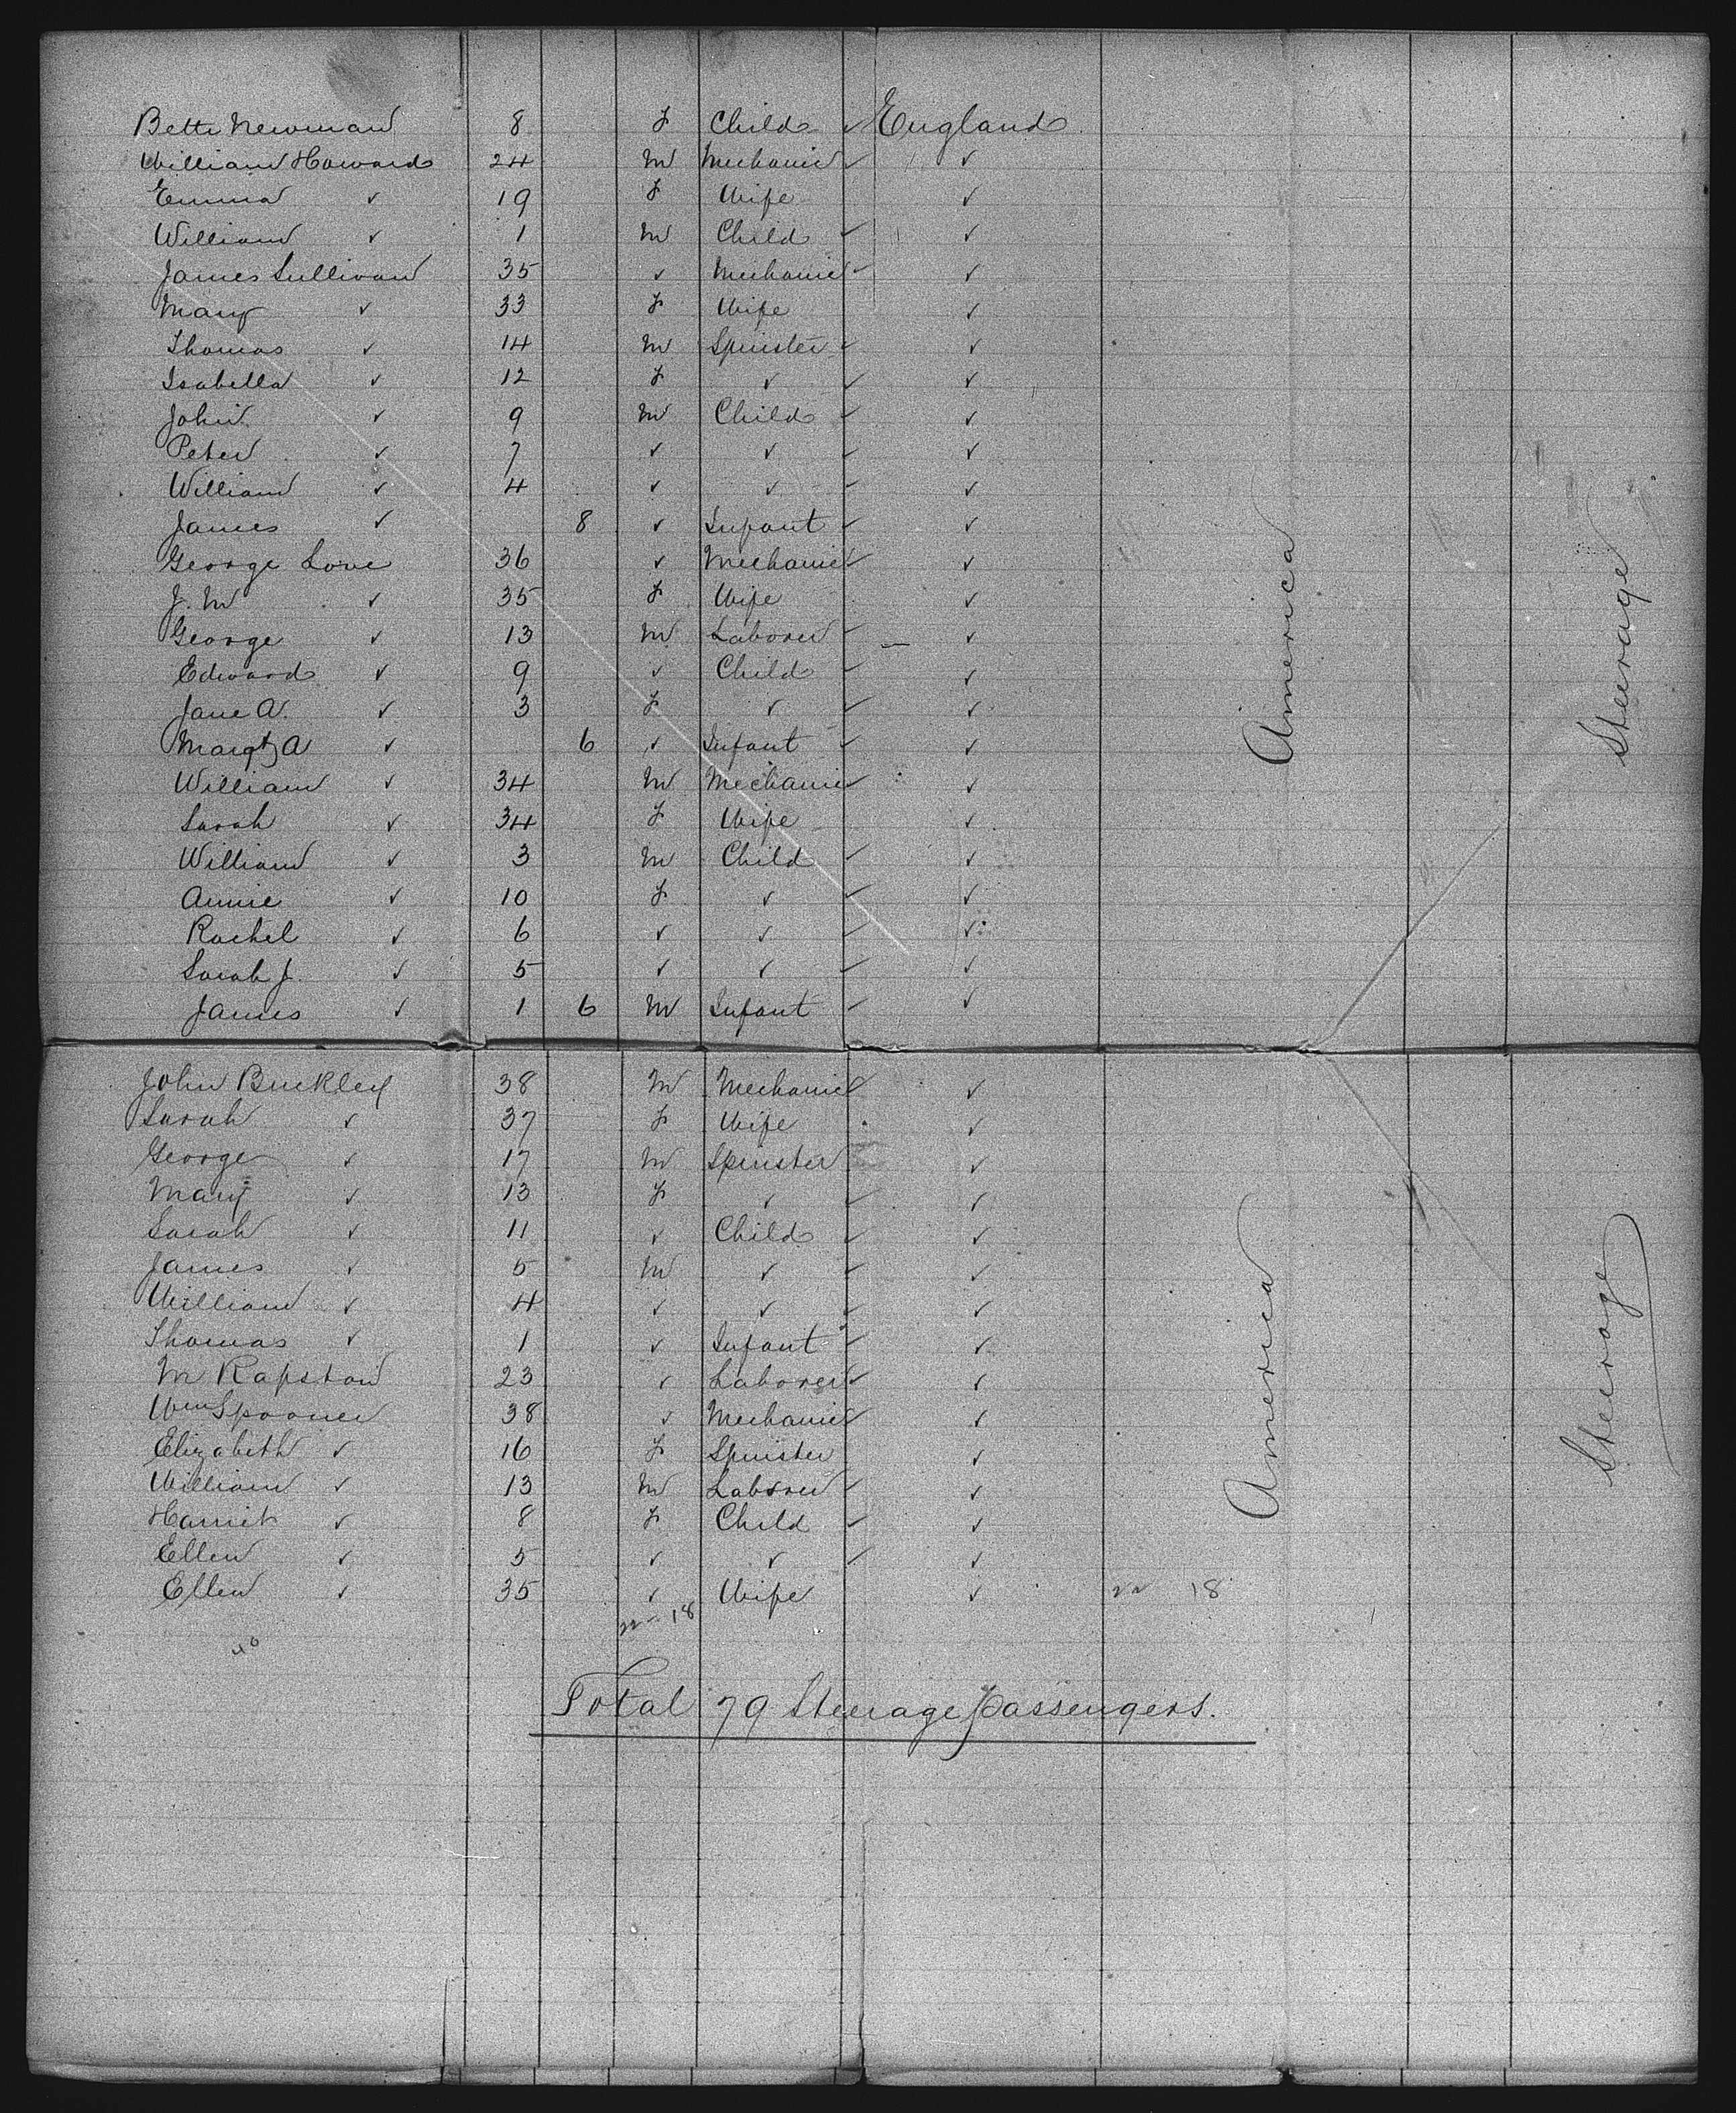 Bette Newman 8 F Child ✓ England
William Howard 24 M Mechanic ✓ ✓
Emma ✓ 19 F Wife ✓
William ✓ 1 M Child ✓ ✓
James Sullivan 35 ✓ Mechanic ✓ ✓
Mary ✓ 33 F Wife ✓
Thomas ✓ 14 M Spinster ✓ ✓
Isabella ✓ 12 F ✓ ✓ ✓
John ✓ 9 M Child ✓ ✓
Peter ✓ 7 ✓ ✓ ✓ ✓
William ✓ 4 ✓ ✓ ✓ ✓
James ✓ 8 ✓ Infant ✓ ✓
George Love 36 ✓ Mechanic ✓ ✓
J. M ✓ 35 F Wife ✓
George ✓ 13 M Laborer ✓ ✓
Edward ✓ 9 ✓ Child ✓ ✓
Jane A. ✓ 3 F ✓ ✓ ✓
Margt A ✓ 6 ✓ Infant ✓ ✓
William ✓ 34 M Mechanic ✓ ✓
Sarah ✓ 34 F Wife ✓
William ✓ 3 M Child ✓ ✓
Annie ✓ 10 F ✓ ✓ ✓
Rachel ✓ 6 ✓ ✓ ✓ ✓
Sarah J. ✓ 5 ✓ ✓ ✓ ✓
James ✓ 1 6 M Infant ✓ ✓
America
Steerage
John Buckley 38 M Mechanic ✓ ✓
Sarah ✓ 37 F Wife ✓
George ✓ 17 M Spinster ✓
Mary ✓ 13 F ✓ ✓ ✓
Sarah ✓ 11 ✓ Child ✓ ✓
James ✓ 5 M ✓ ✓ ✓
William ✓ 4 ✓ ✓ ✓ ✓
Thomas ✓ 1 ✓ Infant ✓ ✓
M Rapston 23 ✓ Laborer ✓ ✓
Wm Spooner 38 ✓ Mechanic ✓ ✓
Elizabeth ✓ 16 F Spinster ✓
William ✓ 13 M Laborer ✓ ✓
Harriet ✓ 8 F Child ✓ ✓
Ellen ✓ 5 ✓ ✓ ✓ ✓
Ellen ✓ 35 ✓ Wife ✓ 22 18
22-18
40
America
Steerage
Total 79 Steerage passengers.